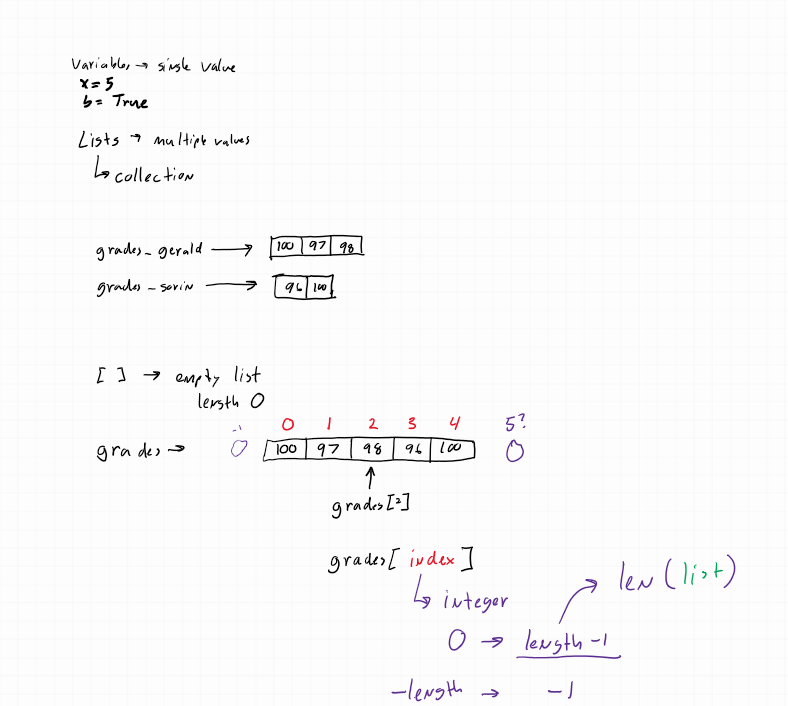 Variables → single value
x = 5
b = True
Lists → multiple values
↳ collection
grades_gerald → 100 97 98
grades_sorin → 96 100
[ ] → empty list
length 0
-1 0 1 2 3 4 5?
grades → 0 100 97 98 96 100 0
grades[2]
grades[ index ]
↳ integer
len(list)
0 → length-1
-length → -1